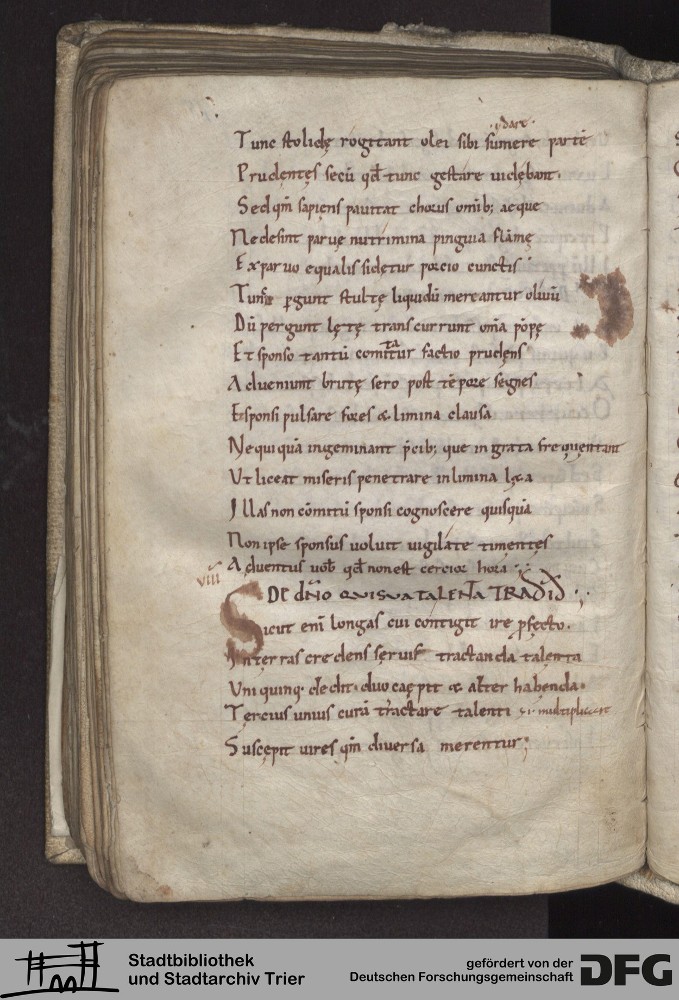 · ł dare ·
Tunc stolidę rogitant olei sibi sumere partē
Prudentes secū qđ tunc gestare uidębant·
Sed qm̄ sapiens pauitat chorus omīb; aeque
Ne desint paruę nutrimina pinguia flāmę
Ex paruo equalis sidetur porcio cunctis
pgunt stultę liquidū mercantur oliuū
Dū pergunt lętę transcurrunt om̄a pōpę
ta
Et sponso tantū comitur factio prudens
Adueniunt brutę sero post tēpore segnes
Et sponsi pulsare fores & limina clausa
Nequiquā ingeminant p̄cib; que ingrata frequentant
Vt liceat miseris penetrare in limina lęta
Illas non cōmitū sponsi cognoscere quisquā
Non ipse sponsus uoluit uigilate timentes
Aduentus uob qđ non est cercior hora
VIII
DE dn̄o QVI SVA TALENTA TRADID
Sicut eni longas cui contugit ire pfecto·
In terras credens seruis tractanda talenta
Uni quinq· dedit· duo caepit & alter habenda·
Tercius unius curā tractare talenti
Suscepit uires qm̄ diuersa merentur;
Stadtbibliothek
und Stadtarchiv Trier
gefördert von der
Deutschen Forschungsgemeinschaft
DFG